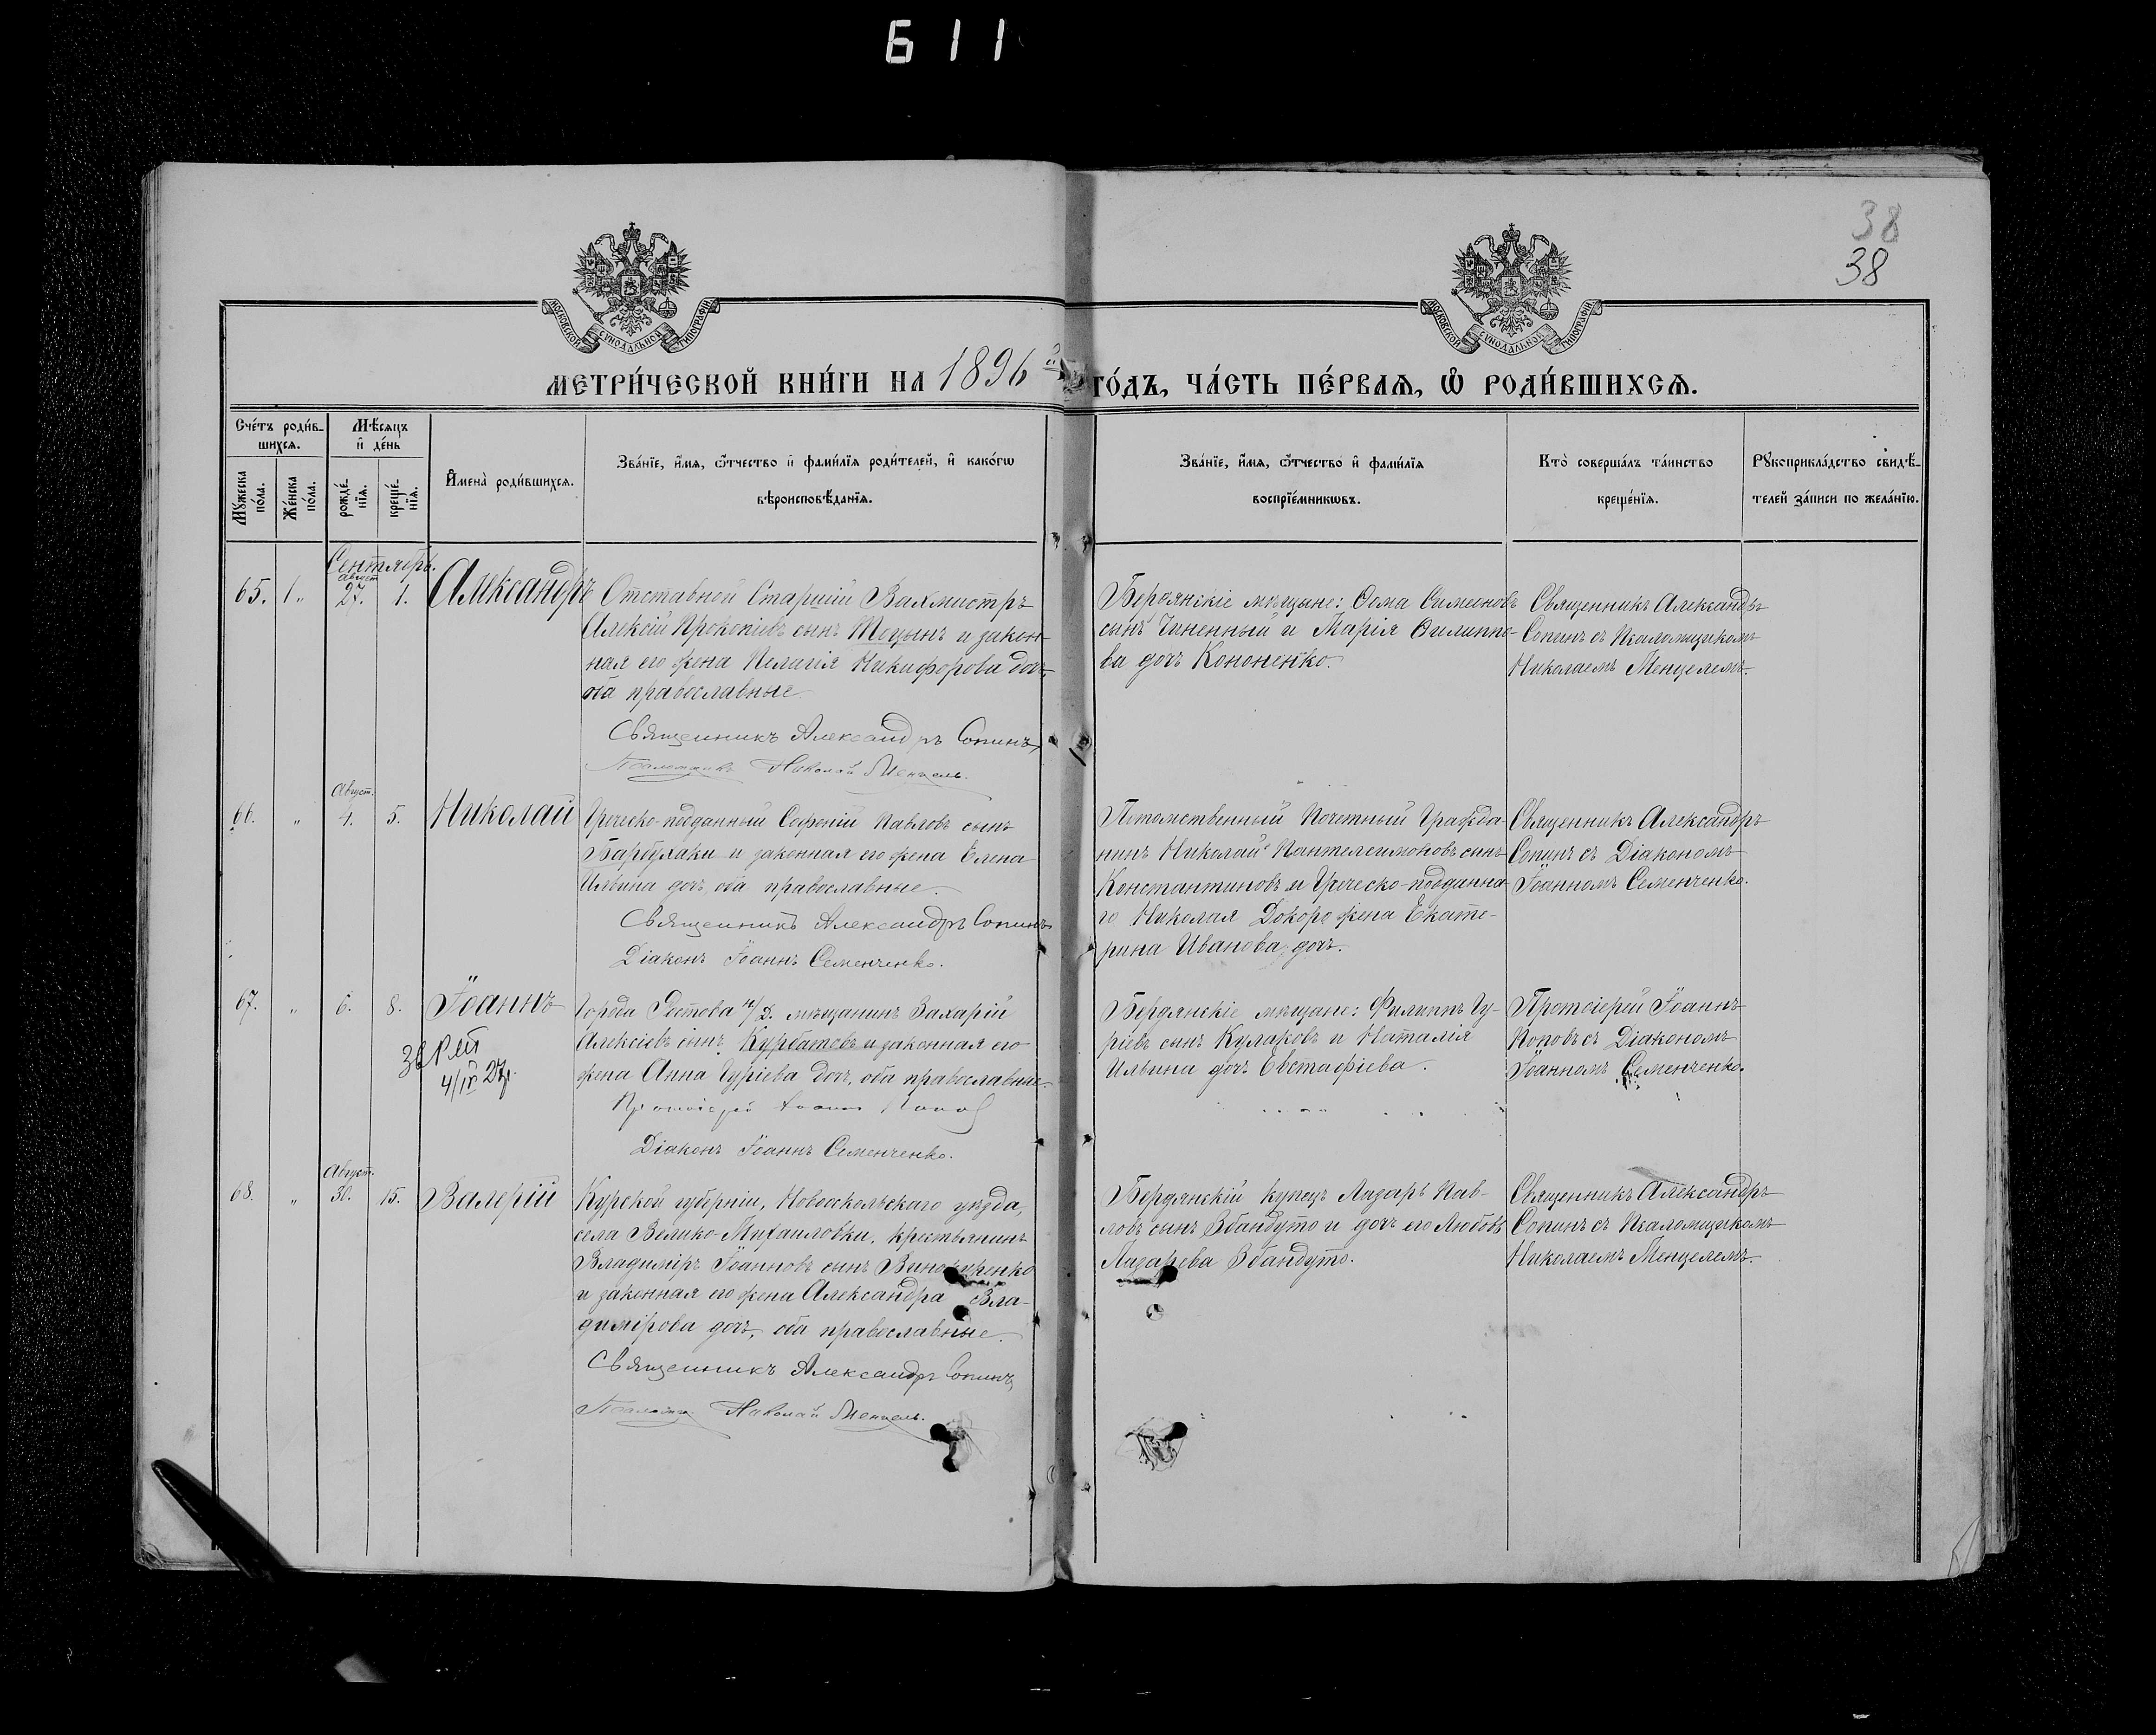 611
38
38
МОСКОВСКОЙ СѴНОДАЛЬНОЙ ТИПОГРАФІИ
МОСКОВСКОЙ СѴНОДАЛЬНОЙ ТИПОГРАФІИ
МЕТРИ́ЧЕСКОЙ КНИ́ГИ НА 1896 й ГО́ДЪ, ЧА́СТЬ ПЕ́РВАѦ, Ѡ РОДИ́ВШИХСѦ.
Сче́тъ роди́в-
шихсѧ.
Мѣ́сѧцъ
и де́нь
Мꙋ́жеска
по́ла.
Же́нска
по́ла.
рожде́-
нїѧ.
креще́-
нїѧ.
Имена̀ роди́вшихсѧ.
Зва́нїе, и́мѧ, ѻ́тчество и фами́лїѧ роди́телей, и како́гѡ
вѣроисповѣ́данїѧ.
Зва́нїе, и́мѧ, ѻ́тчество и фами́лїѧ
воспрїе́мникѡвъ.
Кто̀ соверша́лъ та́инство
креще́нїѧ.
Рꙋкоприкла́дство свидѣ́-
телей за́писи по жела́нїю.
Сентябрь.
Август.
65. 1 „ 27. 1. Александръ
Отставной Старшій Вахмистръ
Алексій Прокопіевъ сынъ и закон-
ная его жена Пелагія Никифорова доч.,
оба православные.
Священникъ Александръ Сопинъ
Псаломщикъ Николай Менцель.
Бердянскіе мѣщане: Ѳома Симеоновъ
сынъ Чиненный и Марія Филиппо-
ва дочь Кононенко.
Священникъ Александръ
Сопинъ съ Псаломщикомъ
Николаемъ Менцелемъ.
Август.
66. „ 4. 5. Николай
Греческо-подданный Софоній Павловъ сынъ
Барбулаки и законная его жена Елена
Ильина дочь, оба православные.
Священникъ Александръ Сопинъ
Діаконъ Іоаннъ Семенченко.
Потомственный Почетный Гражда-
нинъ Николай Пантелеимоновъ сынъ
Константиновъ и Греческо-подданна-
го Николая Докоро жена Екате-
рина Иванова дочь.
Священникъ Александръ
Сопинъ съ Діакономъ
Іоанномъ Семенченко.
67. „ 6. 8. Іоаннъ
4/IX 27г.
Города Ростова н/Д. мѣщанинъ Захарій
Алексіевъ сынъ Курбатовъ и законная его
жена Анна Гуріева дочь, оба православные.
Протоіерей Іоаннъ Поповъ
Діаконъ Іоаннъ Семенченко.
Бердянскіе мѣщане: Филиппъ Гу-
ріевъ сынъ Кулаковъ и Наталія
Ильина дочь Евстафіева.
Протоіерей Іоаннъ
Поповъ съ Діакономъ
Іоанномъ Семенченко.
Август.
68. „ 30. 15. Валерій
Курской губерніи, Новооскольскаго уѣзда,
села Велико-Михаиловки, крестьянинъ
Владиміръ Іоанновъ сынъ Винокуренко
и законная его жена Александра Вла-
димірова дочь, оба православные.
Священникъ Александръ Сопинъ
Николай Менцель.
Бердянскій купецъ Лазарь Пав-
ловъ сынъ Эбандуто и дочь его Любовь
Лазарева Эбандуто.
Священникъ Александръ
Сопинъ съ Псаломщикомъ
Николаемъ Менцелемъ.